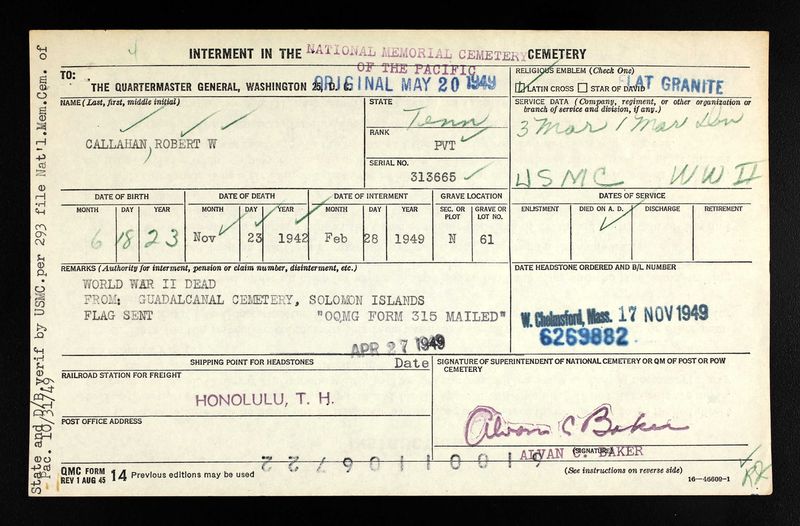 4
INTERMENT IN THE NATIONAL MEMORIAL CEMETERY CEMETERY
OF THE PACIFIC
TO:
THE QUARTERMASTER GENERAL, WASHINGTON 25, D. C.
ORIGINAL MAY 20 1949
RELIGIOUS EMBLEM (Check One)
LATIN CROSS STAR OF DAVID
FLAT GRANITE
NAME (Last, first, middle initial)
CALLAHAN, ROBERT W
STATE
Tenn
RANK
PVT
SERIAL NO.
313665
SERVICE DATA (Company, regiment, or other organization or branch of service and division, if any.)
3 Mar 1 Mar Div
USMC WW II
DATE OF BIRTH
MONTH DAY YEAR
6 18 23
DATE OF DEATH
MONTH DAY YEAR
Nov 23 1942
DATE OF INTERMENT
MONTH DAY YEAR
Feb 28 1949
GRAVE LOCATION
SEC. OR PLOT GRAVE OR LOT NO.
N 61
DATES OF SERVICE
ENLISTMENT DIED ON A. D. DISCHARGE RETIREMENT
REMARKS (Authority for interment, pension or claim number, disinterment, etc.)
WORLD WAR II DEAD
FROM: GUADALCANAL CEMETERY, SOLOMON ISLANDS
FLAG SENT "OQMG FORM 315 MAILED"
APR 27 1949
Date
DATE HEADSTONE ORDERED AND B/L NUMBER
W. Chelmsford, Mass. 17 NOV 1949
6269882
SHIPPING POINT FOR HEADSTONES
RAILROAD STATION FOR FREIGHT
HONOLULU, T. H.
POST OFFICE ADDRESS
SIGNATURE OF SUPERINTENDENT OF NATIONAL CEMETERY OR QM OF POST OR POW CEMETERY
Alvan C Baker
(SIGNATURE)
ALVAN C. BAKER
(See instructions on reverse side)
QMC FORM 14 Previous editions may be used
REV 1 AUG 45
16—46609-1
State and D/B verif by USMC.per 293 file Nat'l.Mem.Cem. of
Pac. 10/31/49